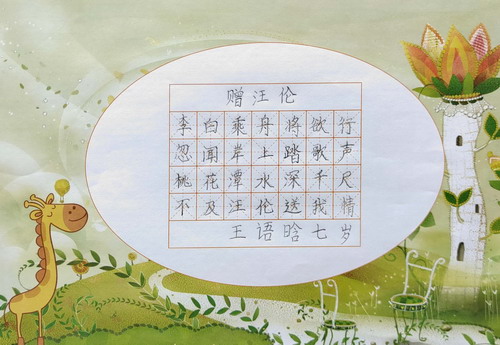 赠汪伦
李白乘舟将欲行
忽闻岸上踏歌声
桃花潭水深千尺
不及汪伦送我情
王语晗七岁